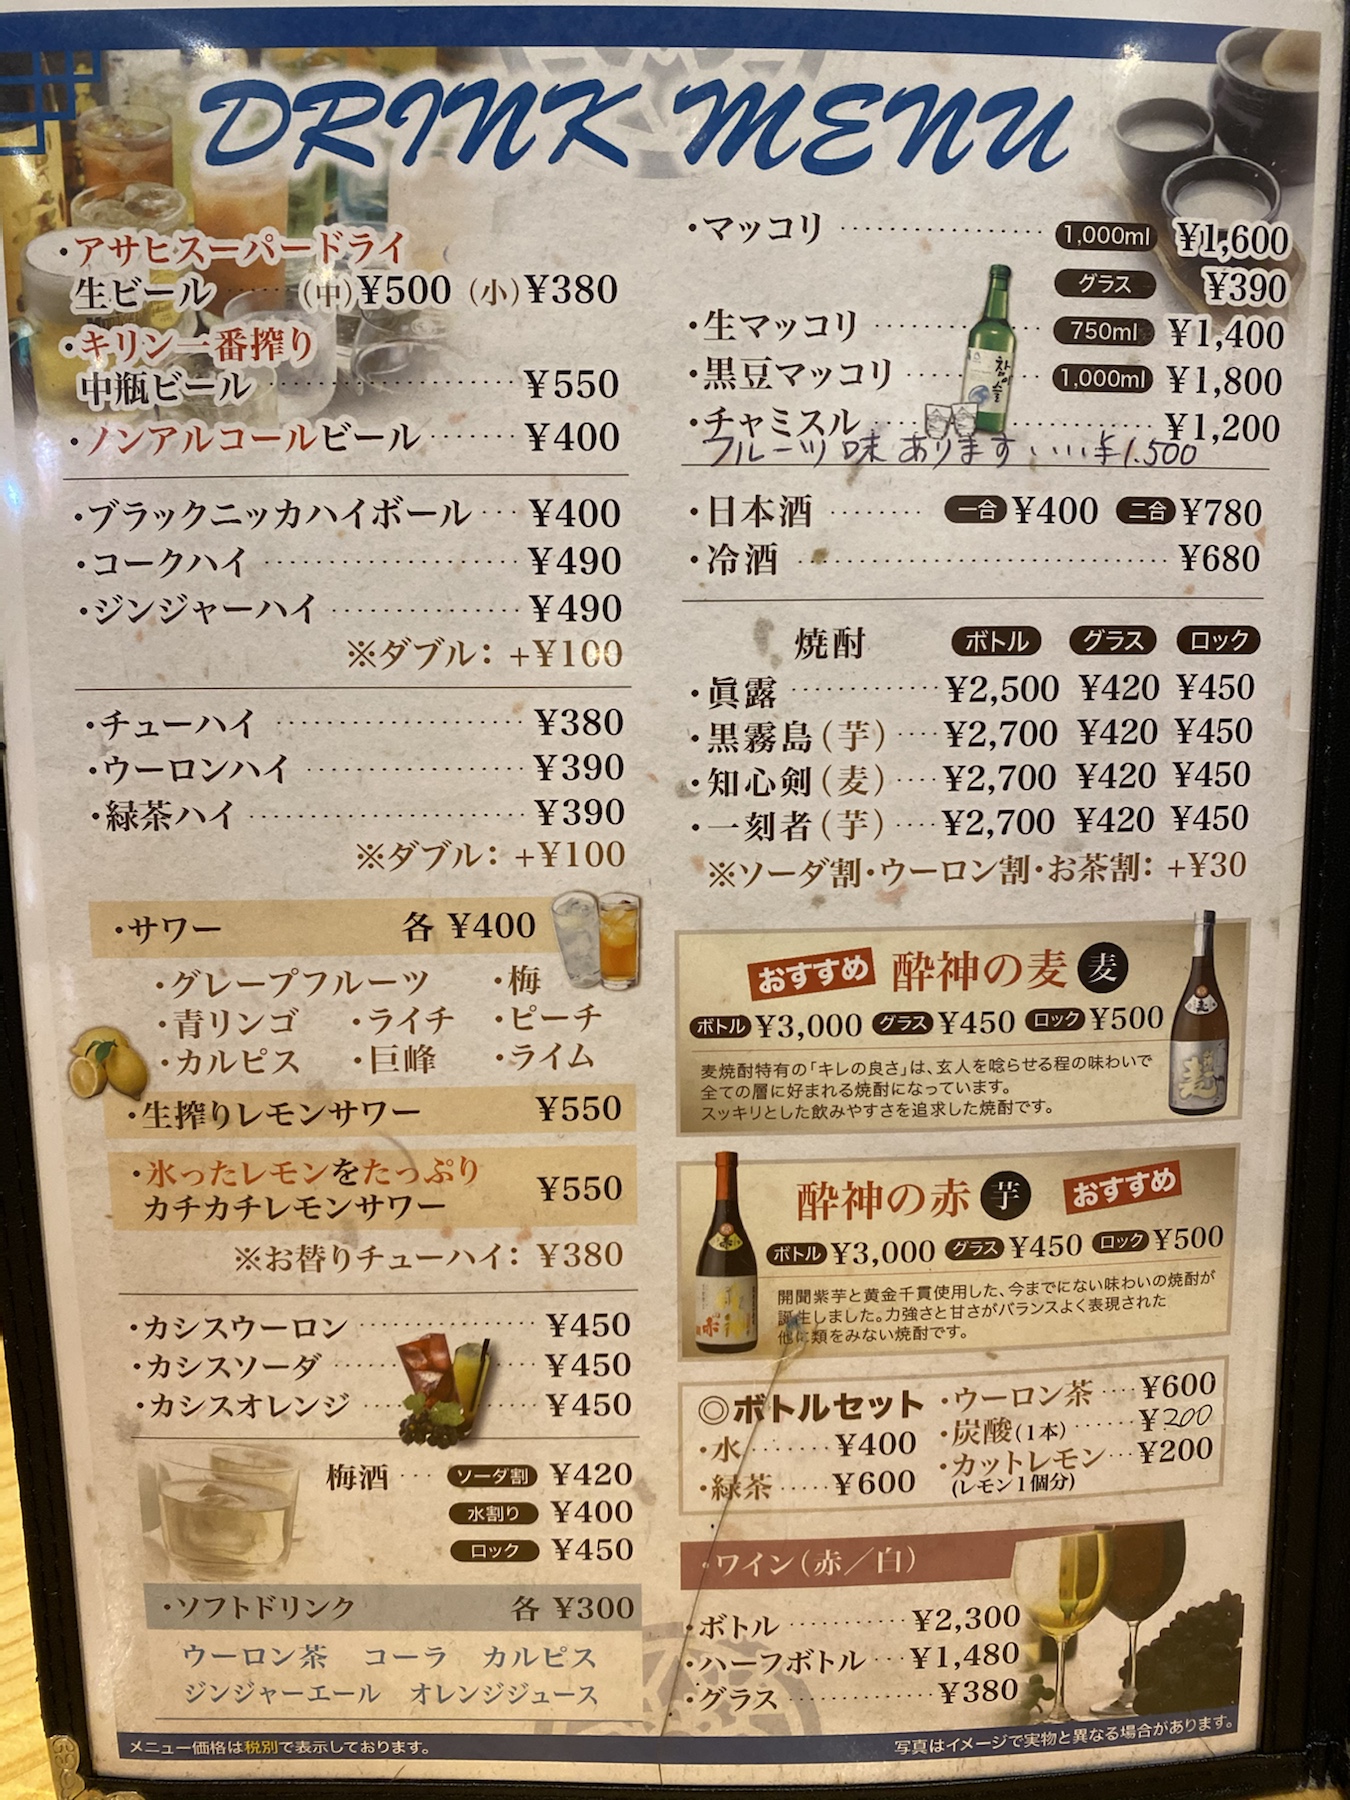 DRINK MENU
・アサヒスーパードライ
生ビール ······ (中)¥500 (小)¥380
・キリン一番搾り
中瓶ビール ·················· ¥550
・ノンアルコールビール ······· ¥400
・ブラックニッカハイボール ··· ¥400
・コークハイ ·················· ¥490
・ジンジャーハイ ·············· ¥490
※ダブル：+¥100
・チューハイ ·················· ¥380
・ウーロンハイ ················ ¥390
・緑茶ハイ ···················· ¥390
※ダブル：+¥100
・サワー 各 ¥400
・グレープフルーツ ・梅
・青リンゴ ・ライチ ・ピーチ
・カルピス ・巨峰 ・ライム
・生搾りレモンサワー ¥550
・氷ったレモンをたっぷり
カチカチレモンサワー ¥550
※お替りチューハイ：¥380
・カシスウーロン ·············· ¥450
・カシスソーダ ················ ¥450
・カシスオレンジ ·············· ¥450
梅酒 ··· ソーダ割 ¥420
水割り ¥400
ロック ¥450
・ソフトドリンク 各 ¥300
ウーロン茶 コーラ カルピス
ジンジャーエール オレンジジュース
メニュー価格は税別で表示しております。
・マッコリ ················ 1,000ml ¥1,600
グラス ¥390
・生マッコリ ············· 750ml ¥1,400
・黒豆マッコリ ··········· 1,000ml ¥1,800
참이슬
・チャミスル ··················· ¥1,200
フルーツ味 あります ····· ¥1.500
・日本酒 ········ 一合 ¥400 二合 ¥780
・冷酒 ························ ¥680
焼酎 ボトル グラス ロック
・眞露 ············ ¥2,500 ¥420 ¥450
・黒霧島(芋) ···· ¥2,700 ¥420 ¥450
・知心剣(麦) ···· ¥2,700 ¥420 ¥450
・一刻者(芋) ···· ¥2,700 ¥420 ¥450
※ソーダ割・ウーロン割・お茶割：+¥30
おすすめ 酔神の麦 麦
ボトル ¥3,000 グラス ¥450 ロック ¥500
麦焼酎特有の「キレの良さ」は、玄人を唸らせる程の味わいで
全ての層に好まれる焼酎になっています。
スッキリとした飲みやすさを追求した焼酎です。
酔神の赤 芋 おすすめ
ボトル ¥3,000 グラス ¥450 ロック ¥500
開聞紫芋と黄金千貫使用した、今までにない味わいの焼酎が
誕生しました。力強さと甘さがバランスよく表現された
他に類をみない焼酎です。
◎ボトルセット
・水 ······· ¥400
・緑茶 ····· ¥600
・ウーロン茶 ···· ¥600
・炭酸(1本) ······ ¥200
・カットレモン ··· ¥200
(レモン1個分)
・ワイン(赤／白)
・ボトル ·········· ¥2,300
・ハーフボトル ··· ¥1,480
・グラス ············ ¥380
写真はイメージで実物と異なる場合があります。